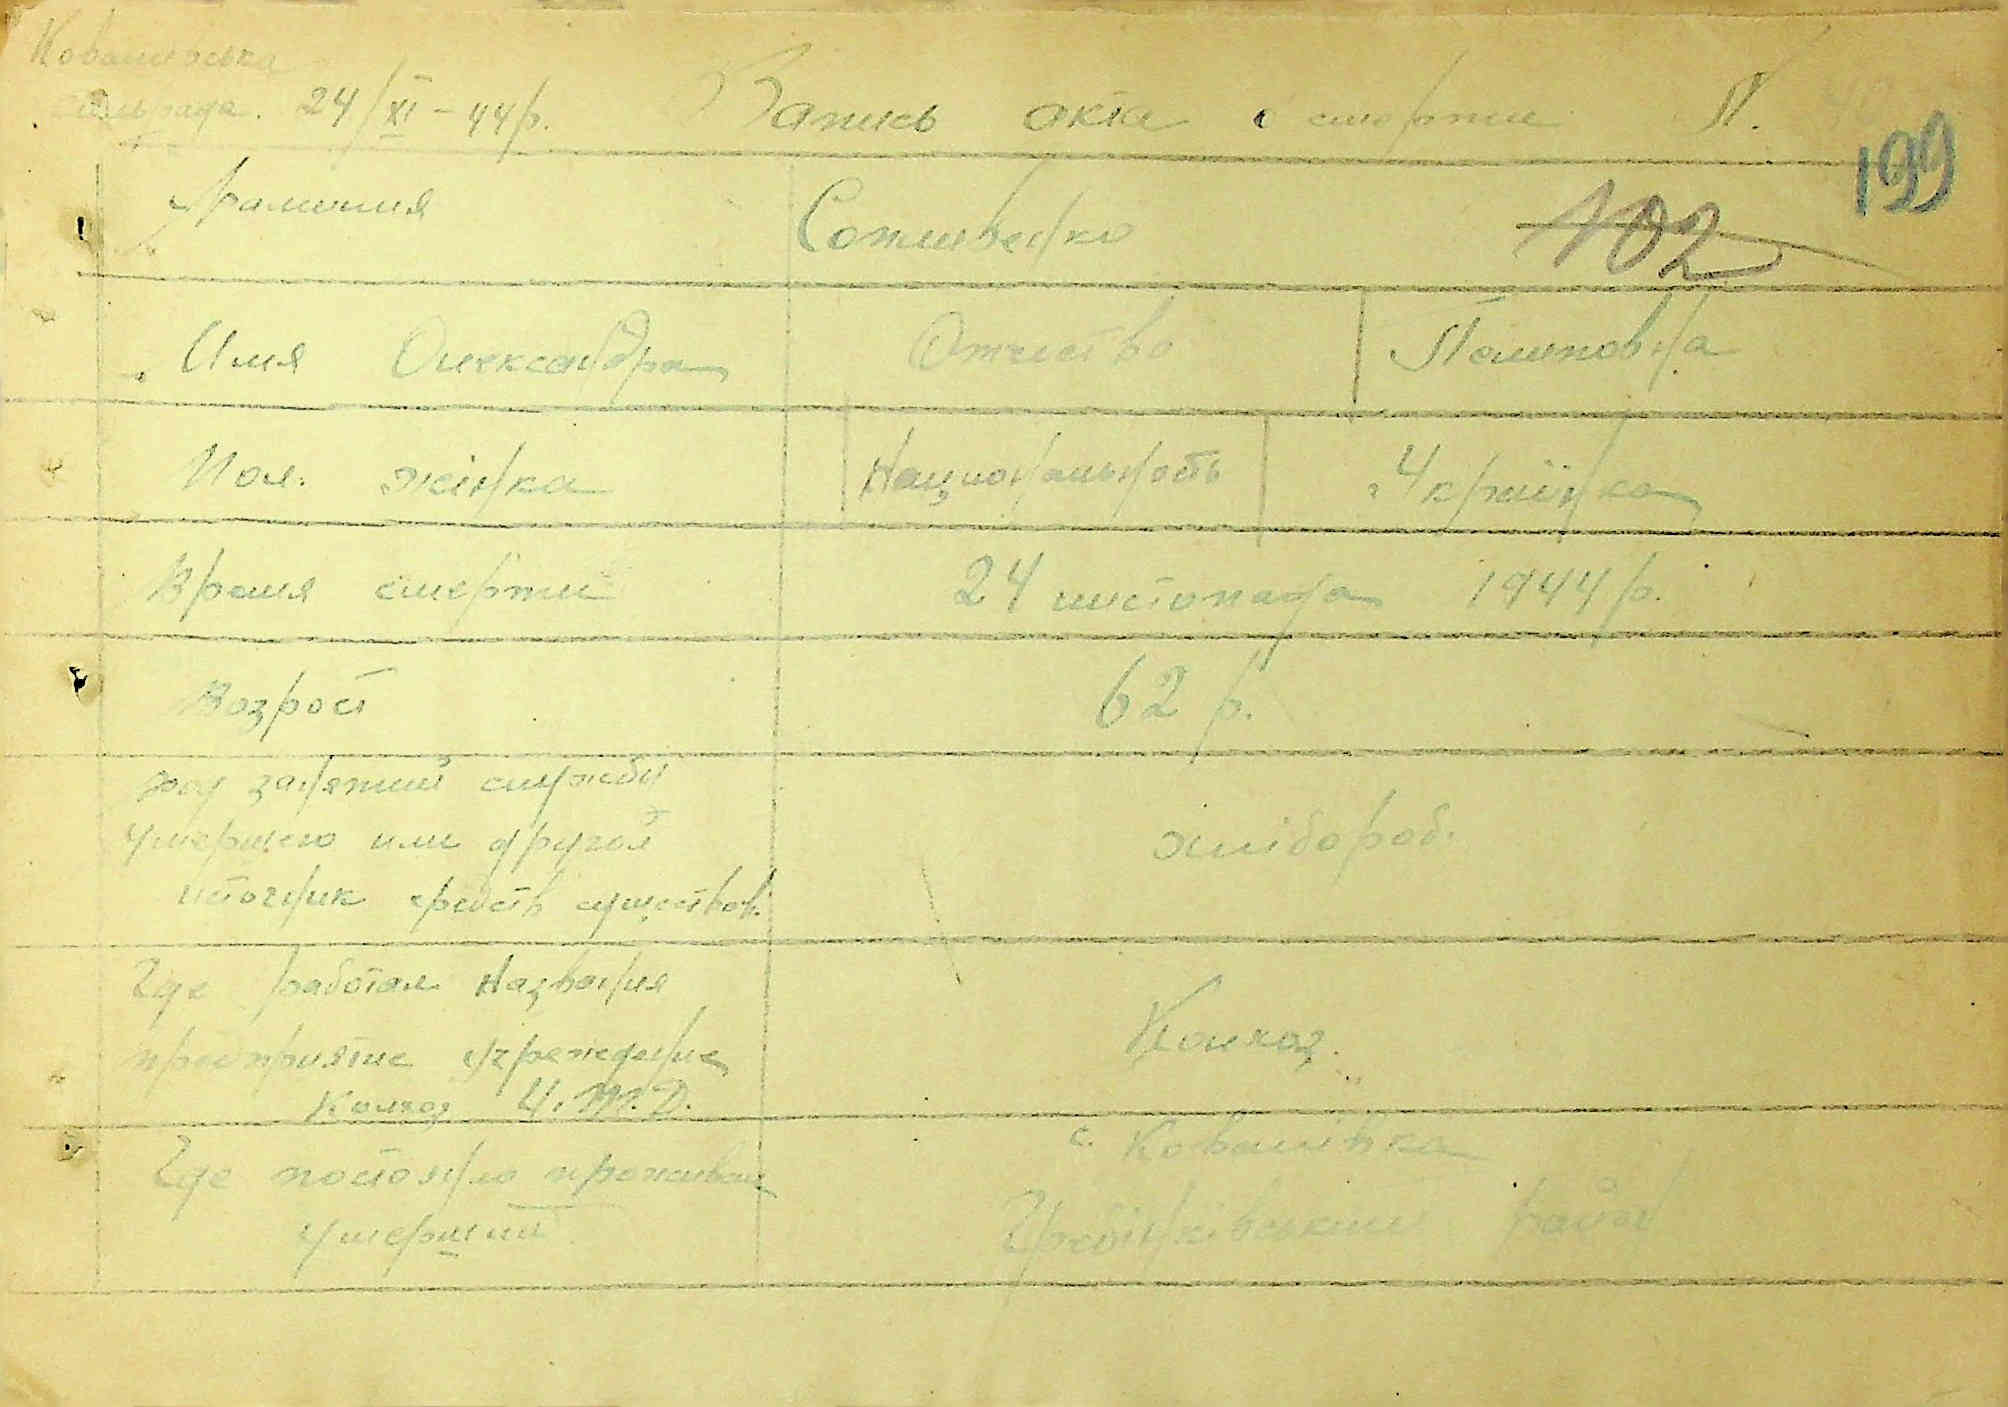 Ковалівська
сільрада. 24/XI-44р. Запись акта о смерти N.
199
Фамилия
102
Имя Олександра Отчество
Пол. жінка Национальность Українка
Время смерти 24 листопада 1944 р.
Возрост 62 р.
Род занятий службы
умершего или другой хлібороб.
источник средств существов.
Где работал Названия
предприятие учреждение Колхоз.
Колхоз И.Т.Д.
с. Ковалівка
Где постояно проживал
умерший Гребінківський район